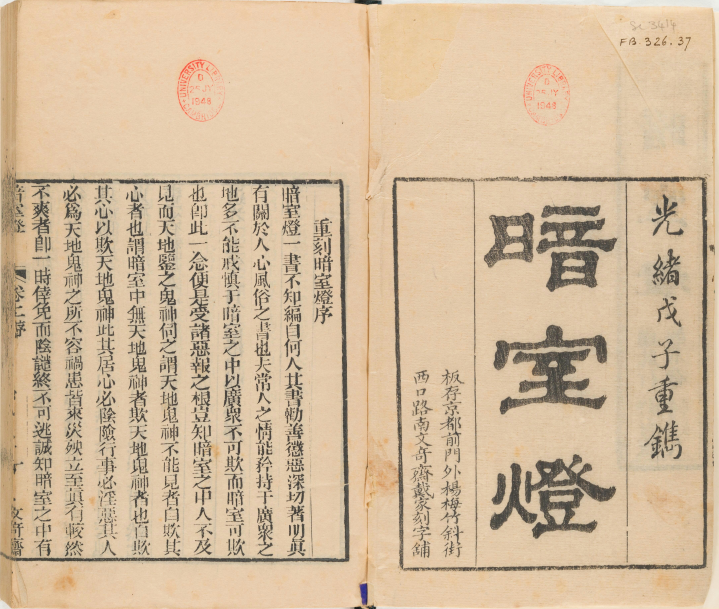 Sc 3414
FB.326.37
光緒戊子重鐫
暗室燈
板存京都前門外楊梅竹斜街
西口路南文奇齋戴家刻字鋪
UNIVERSITY LIBRARY
1948
UNIVERSITY LIBRARY
1948
重刻暗室燈序
暗室燈一書不知編自何人其書勸善懲惡深切著明眞
有關於人心風俗之書也夫常人之情能矜持于廣衆之
地多不能戒愼于暗室之中以廣衆不可欺而暗室可欺
也卽此一念便是受諸惡報之根豈知暗室之中人不及
見而天地鑒之鬼神伺之謂天地鬼神不能見者自欺其
心者也謂暗室中無天地鬼神者欺天地鬼神者也自欺
其心以欺天地鬼神此其居心必陰險行事必淫惡其人
必爲天地鬼神之所不容禍患皆來災殃立至眞有較然
不爽者卽一時倖免而陰譴終不可逃誠知暗室之中有
暗室燈 卷上序 文奇齋